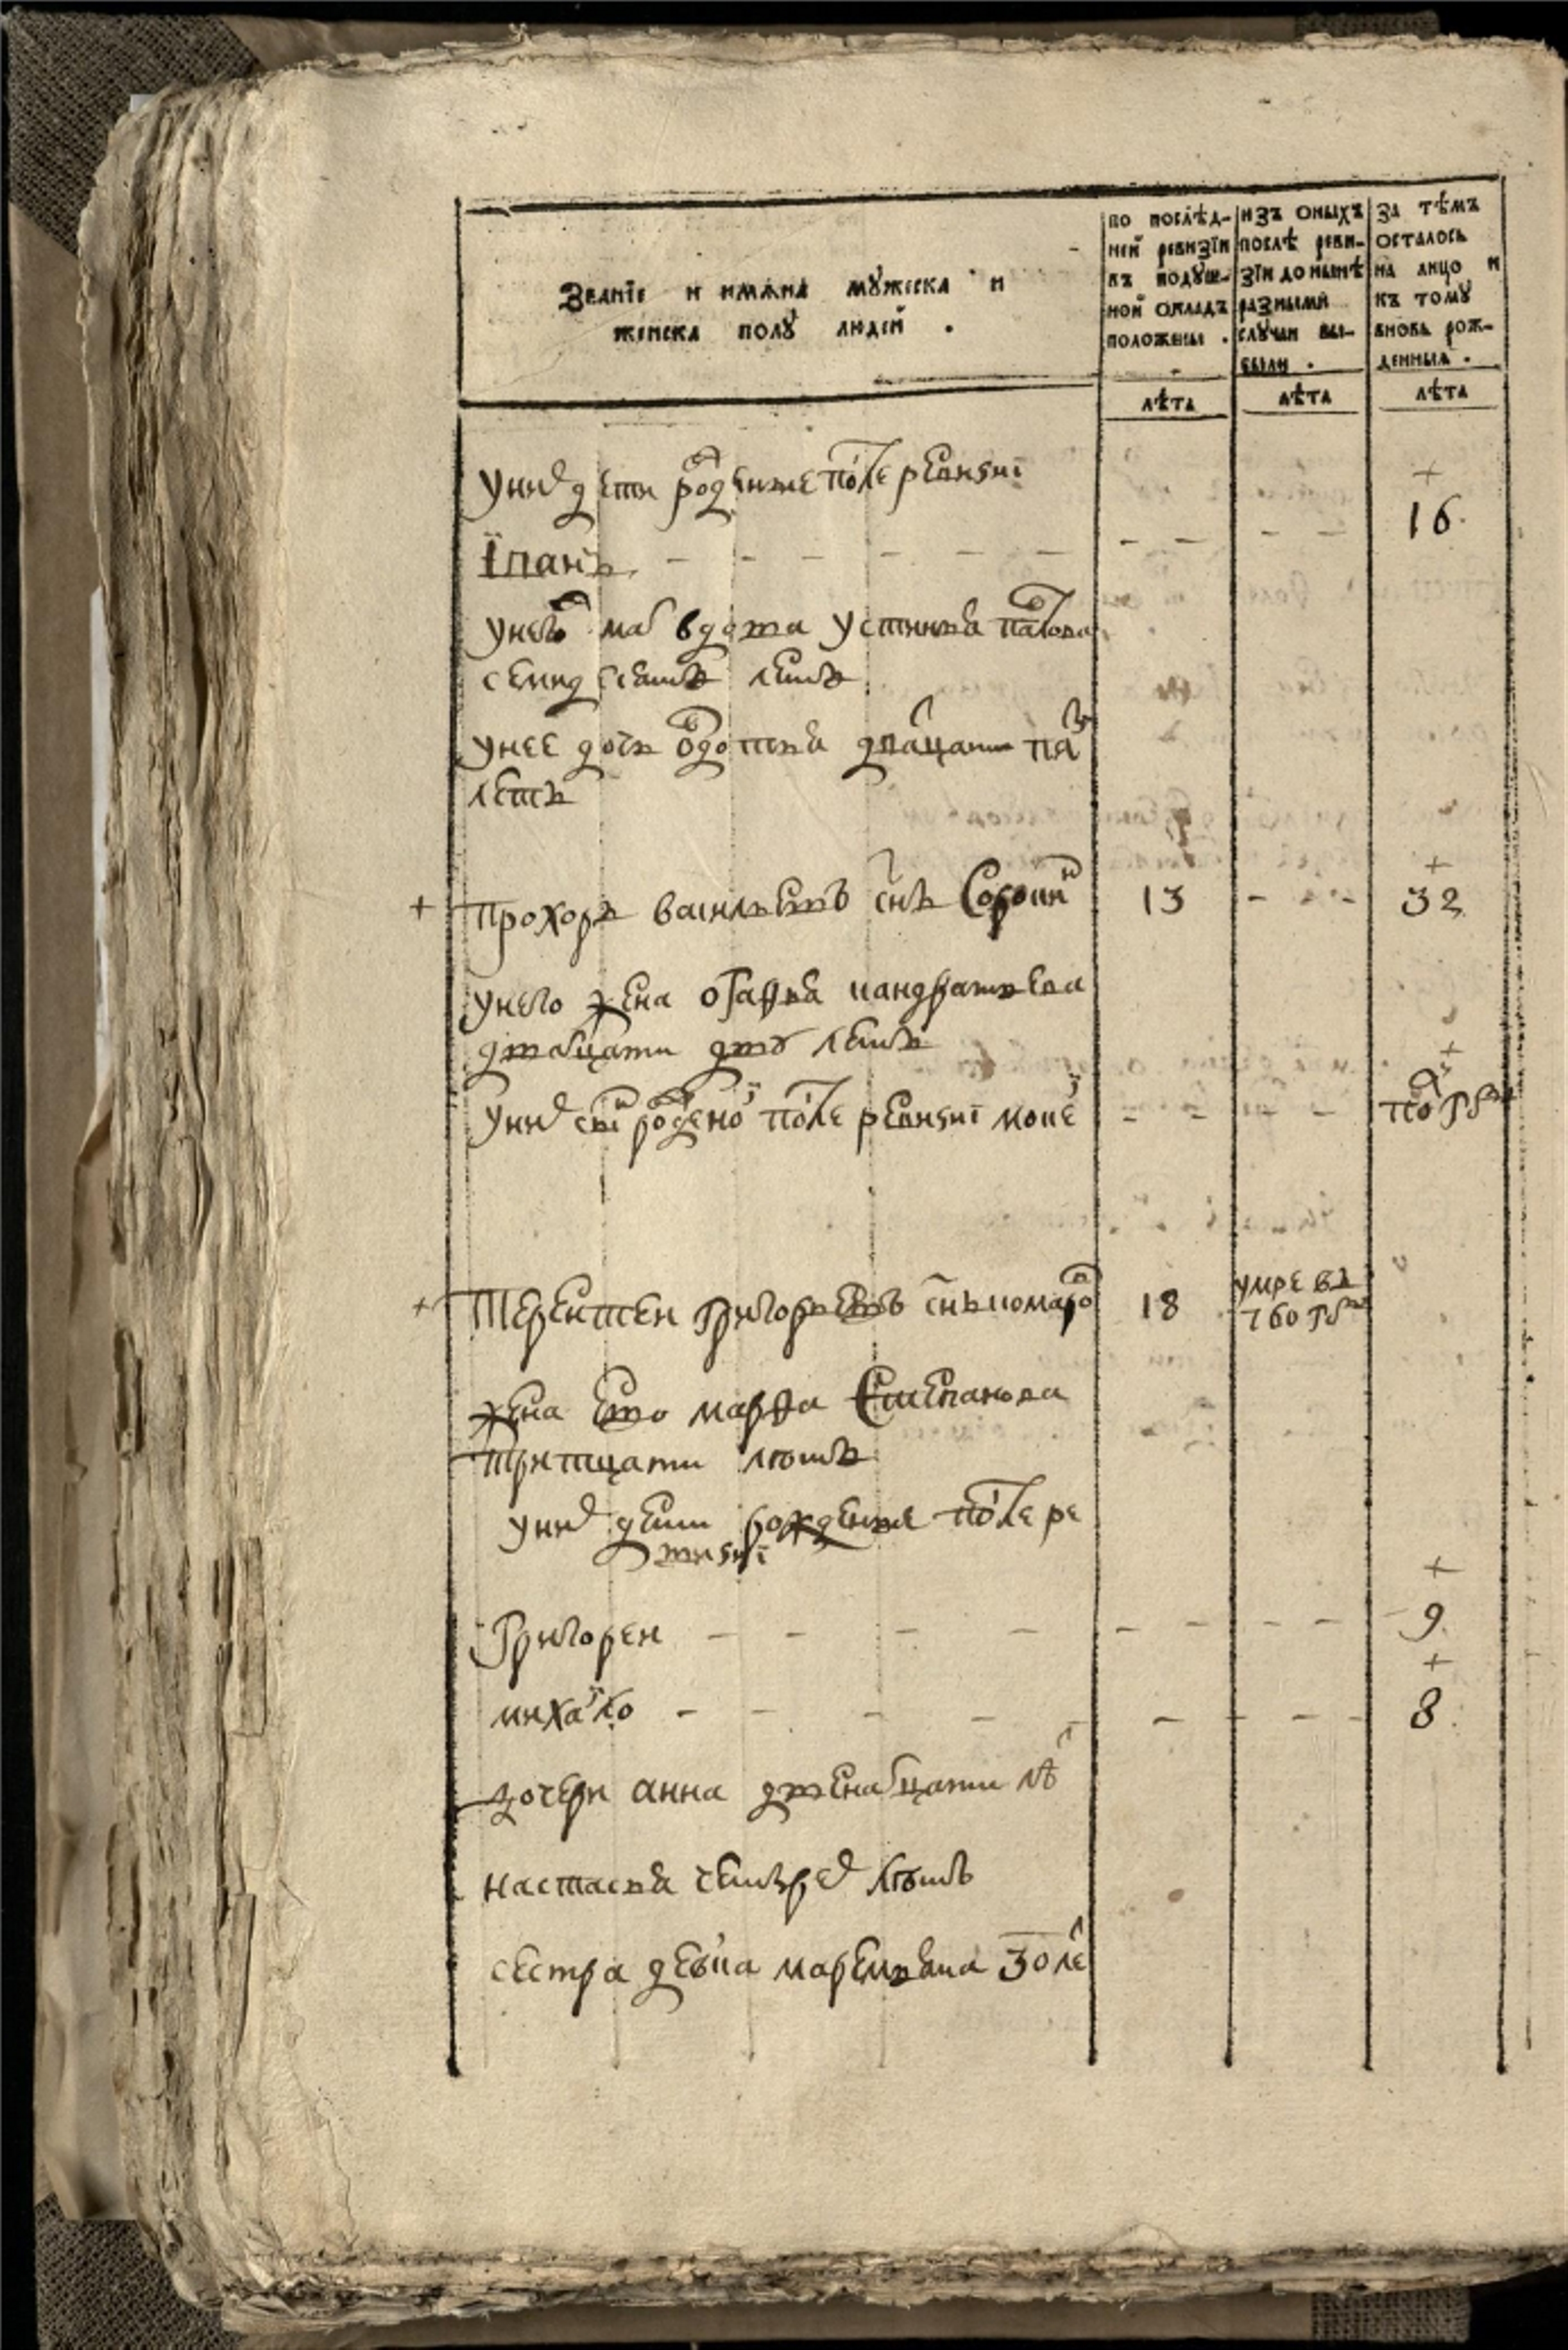 Званїе и имѧна мꙋжеска и
женска полꙋ людей .
по послѣд-
ней ревизїи
въ подꙋш-
ной окладъ
положены .
изъ оныхъ
послѣ реви-
зїи до нынѣ
разными
слꙋчаи вы-
были .
за тѣмъ
осталось
на лицо и
къ томꙋ
вновь рож-
денныя .
лѣта
лѣта
лѣта
у них дети рожденые после ревизиї
+
Їванъ - - - - - - - - - - 16
у него мат вдова устинья павлова
семидесятъ летъ
у нее дочь овдотья двацати пят
летъ
+ прохоръ васильевъ снъ Сорокин 13 - - - + 32
у него жена огафья кандратьева
дватцати двв летъ
у них снъ рожденой после ревизиї мокей - - - - + полгода
+ Терентеи Григорьевъ снъ комаров 18 умре въ
760 году
жена ево марфа Степанова
тритцати летъ
у них дети рожденые после ре
визиї
+
Григореи - - - - - - - - 9
+
михайло - - - - - - - - - 8
дочери анна двенатцати лѣт
настасья четырех летъ
сестра девка маремьяна 30 лет